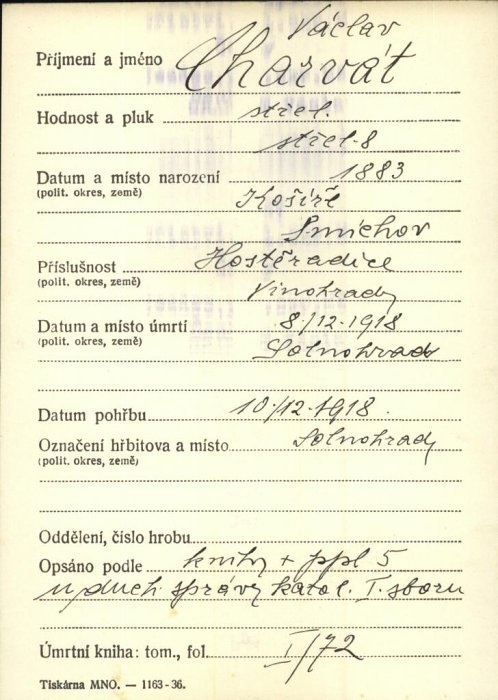 Václav
Příjmení a jméno Charvát
Hodnost a pluk střel.
střel. 8
Datum a místo narození 1883
(polit. okres, země) Košíře
Smíchov
Příslušnost Hostěradice
(polit. okres, země) Vinohrady
Datum a místo úmrtí 8/12.1918
(polit. okres, země) Solnohrad
Datum pohřbu 10/12.1918.
Označení hřbitova a místo Solnohrady
(polit. okres, země)
Oddělení, číslo hrobu
Opsáno podle knihy + ppl 5
u duch. správy katol. I. sboru
Úmrtní kniha: tom., fol. I/72
Tiskárna MNO. — 1163-36.